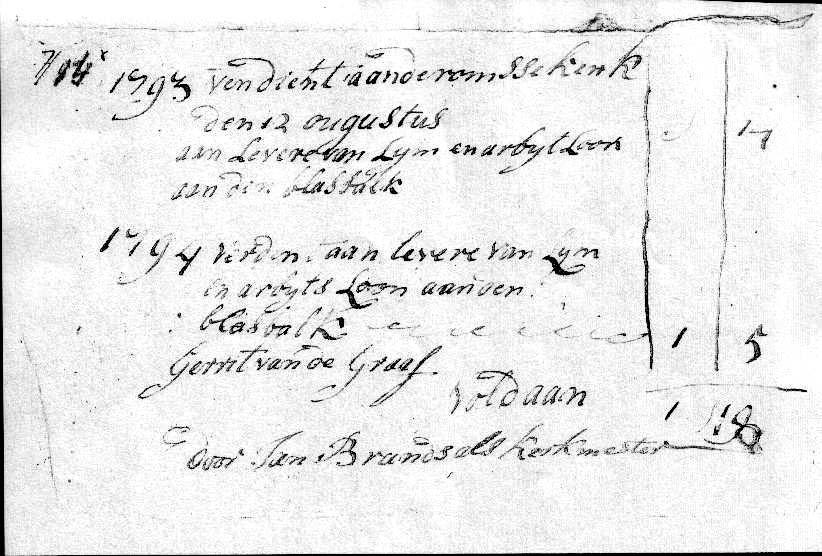 1793 vendient aande romsse kerk
den 12 ougustus
aan Levere van Lym en arbyt Loon
aan den blasbalk
1794 verdent aan levere van Lym
en arbyts Loon aan den
blasbalk 1 5
Gerrit van de Graaf
voldaan 1
door Jan Brands als kerkmester